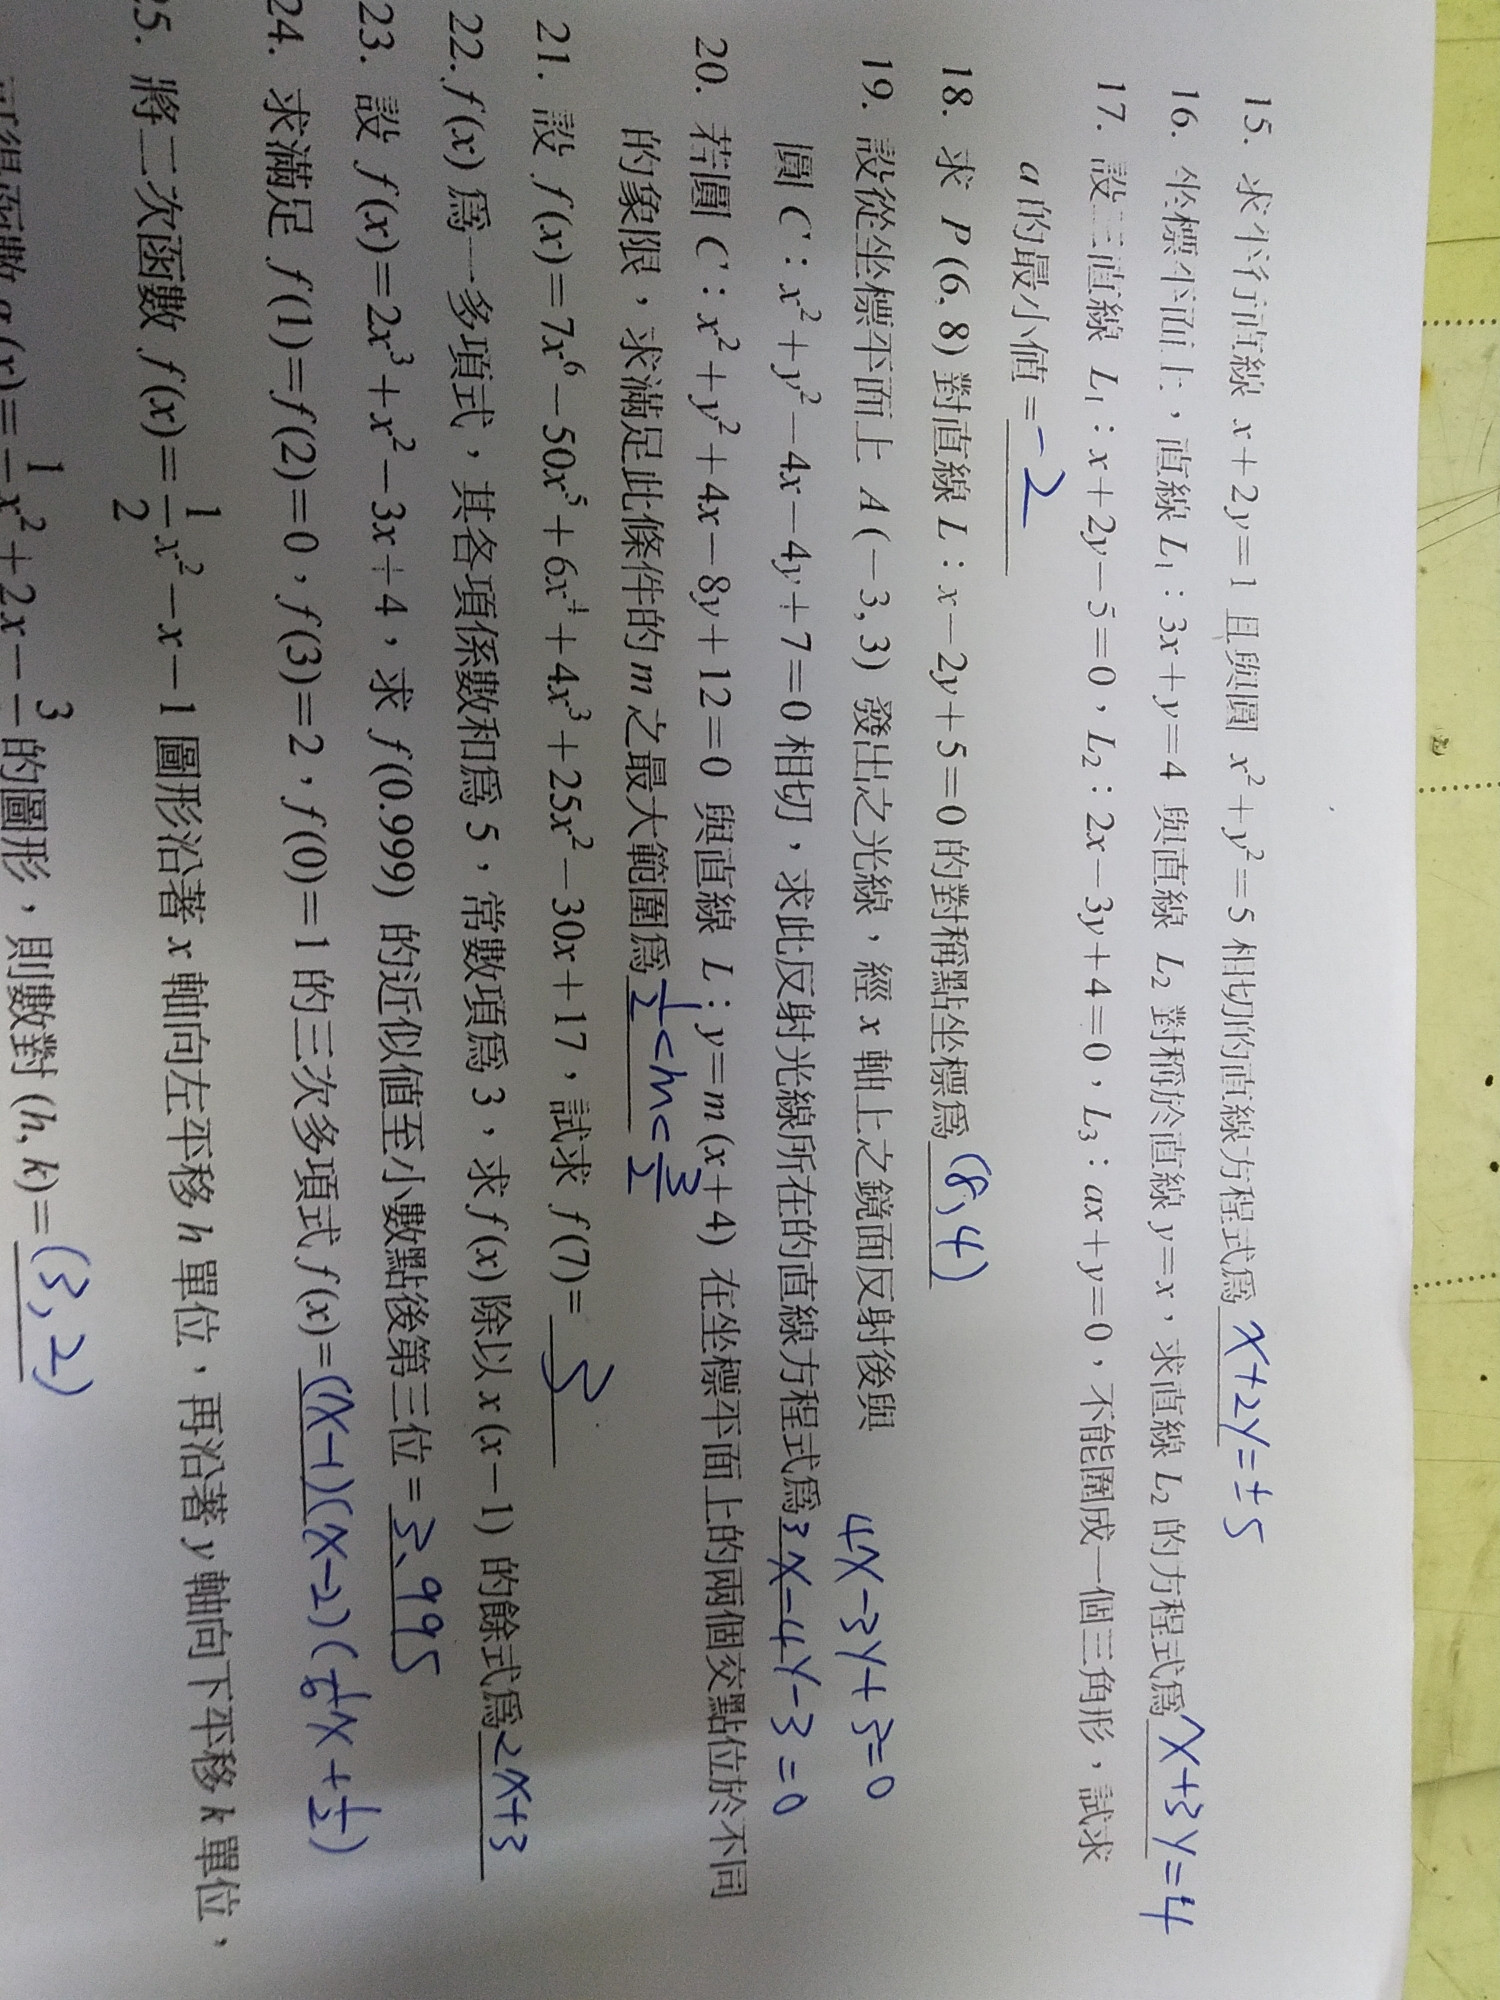 15. 求平行直線 x+2y=1 且與圓 x²+y²=5 相切的直線方程式爲 x+2y=±5
16. 坐標平面上，直線 L₁：3x+y=4 與直線 L₂ 對稱於直線 y=x，求直線 L₂ 的方程式爲 x+3y=4
17. 設三直線 L₁：x+2y−5=0，L₂：2x−3y+4=0，L₃：ax+y=0，不能圍成一個三角形，試求
a 的最小值=-2
18. 求 P(6, 8) 對直線 L：x−2y+5=0 的對稱點坐標爲 (8,4)
19. 設從坐標平面上 A(−3, 3) 發出之光線，經 x 軸上之鏡面反射後與
4x-3y+3=0
圓 C：x²+y²−4x−4y+7=0 相切，求此反射光線所在的直線方程式爲 3x-4y-3=0
20. 若圓 C：x²+y²+4x−8y+12=0 與直線 L：y=m(x+4) 在坐標平面上的兩個交點位於不同
的象限，求滿足此條件的 m 之最大範圍爲 1/2<m<3/2
21. 設 f(x)=7x⁶−50x⁵+6x⁴+4x³+25x²−30x+17，試求 f(7)= 3
22. f(x) 爲一多項式，其各項係數和爲 5，常數項爲 3，求 f(x) 除以 x(x−1) 的餘式爲 2x+3
23. 設 f(x)=2x³+x²−3x+4，求 f(0.999) 的近似值至小數點後第三位=3.995
24. 求滿足 f(1)=f(2)=0，f(3)=2，f(0)=1 的三次多項式 f(x)=(x-1)(x-2)(1/6x+1/2)
25. 將二次函數 f(x)=1/2x²−x−1 圖形沿著 x 軸向左平移 h 單位，再沿著 y 軸向下平移 k 單位，
可得函數 g(x)=1/ x²+2x−3/ 的圖形，則數對 (h, k)=(3,2)